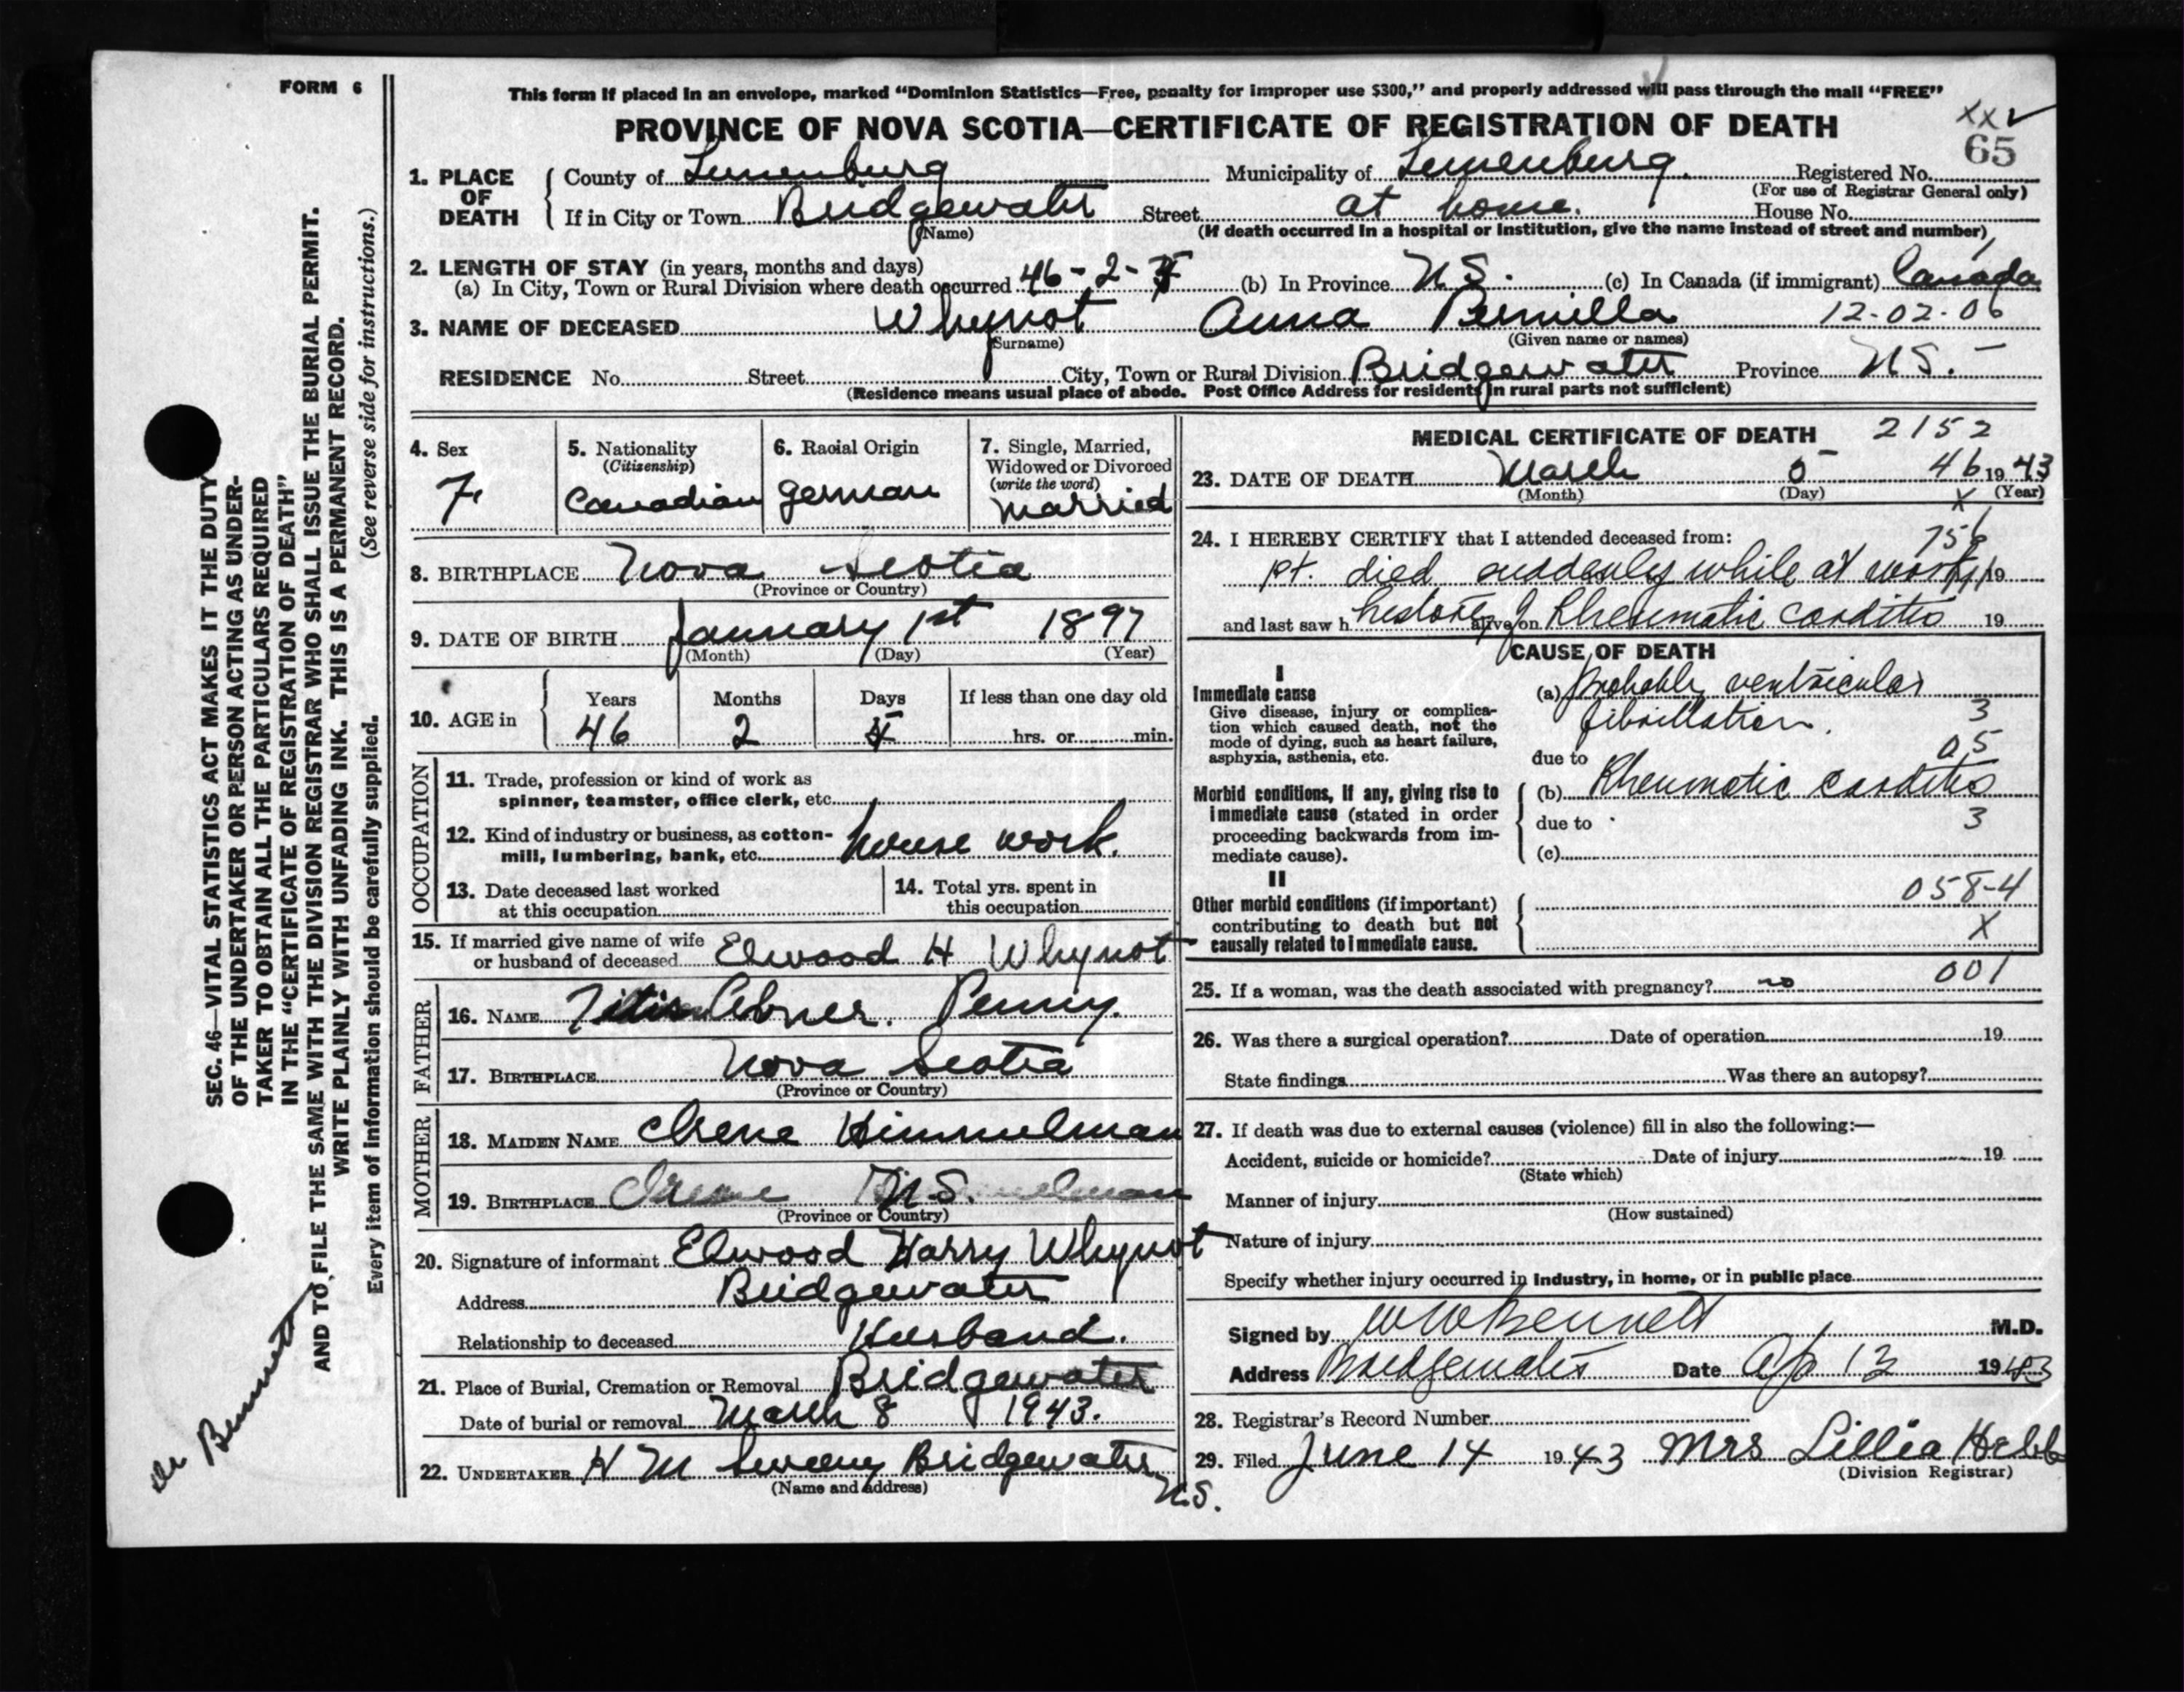 FORM 6
This form if placed in an envelope, marked “Dominion Statistics—Free, penalty for improper use $300,” and properly addressed will pass through the mail “FREE”
PROVINCE OF NOVA SCOTIA—CERTIFICATE OF REGISTRATION OF DEATH
XX✓
65
1. PLACE OF DEATH
County of Lunenburg Municipality of Lunenburg. Registered No.
(For use of Registrar General only)
If in City or Town Bridgewater Street at home. House No.
(Name) (If death occurred in a hospital or institution, give the name instead of street and number)
2. LENGTH OF STAY (in years, months and days)
(a) In City, Town or Rural Division where death occurred 46-2- (b) In Province N S. (c) In Canada (if immigrant) Canada
3. NAME OF DECEASED Whynot Anna Pernilla 12-02-06
(Surname) (Given name or names)
RESIDENCE No. Street City, Town or Rural Division Bridgewater Province N S.
(Residence means usual place of abode. Post Office Address for residents in rural parts not sufficient)
4. Sex
F.
5. Nationality
(Citizenship)
Canadian
6. Racial Origin
German
7. Single, Married,
Widowed or Divorced
(write the word)
Married
8. BIRTHPLACE Nova Scotia
(Province or Country)
9. DATE OF BIRTH January 1st 1897
(Month) (Day) (Year)
10. AGE in
Years Months Days If less than one day old
46 2 hrs. or min.
OCCUPATION
11. Trade, profession or kind of work as
spinner, teamster, office clerk, etc.
12. Kind of industry or business, as cotton-
mill, lumbering, bank, etc. house work.
13. Date deceased last worked
at this occupation
14. Total yrs. spent in
this occupation
15. If married give name of wife
or husband of deceased Elwood H Whynot
FATHER
16. NAME Abner. Penny.
17. BIRTHPLACE Nova Scotia
(Province or Country)
MOTHER
18. MAIDEN NAME Irene Himmelman
19. BIRTHPLACE Irene N.S.
(Province or Country)
20. Signature of informant Elwood Harry Whynot
Address Bridgewater
Relationship to deceased Husband.
21. Place of Burial, Cremation or Removal Bridgewater
Date of burial or removal March 8 1943.
22. UNDERTAKER H M Sweeny Bridgewater
N.S.
(Name and address)
MEDICAL CERTIFICATE OF DEATH 2152
23. DATE OF DEATH March 5 46 1943
(Month) (Day) (Year)
X
24. I HEREBY CERTIFY that I attended deceased from:
pt. died suddenly while at work 19
and last saw h alive on 19
history of Rheumatic carditis
CAUSE OF DEATH
I
Immediate cause
Give disease, injury or complica-
tion which caused death, not the
mode of dying, such as heart failure,
asphyxia, asthenia, etc.
(a) Probably ventricular
fibrillation. 3
due to 05
Morbid conditions, if any, giving rise to
immediate cause (stated in order
proceeding backwards from im-
mediate cause).
(b) Rheumatic carditis
due to 3
(c)
II
Other morbid conditions (if important)
contributing to death but not
causally related to immediate cause.
058-4
X
001
25. If a woman, was the death associated with pregnancy? no
26. Was there a surgical operation? Date of operation 19
State findings Was there an autopsy?
27. If death was due to external causes (violence) fill in also the following:—
Accident, suicide or homicide? Date of injury 19
(State which)
Manner of injury
(How sustained)
Nature of injury
Specify whether injury occurred in industry, in home, or in public place
Signed by W W Bennett M.D.
Address Bridgewater Date Ap 13 1943
28. Registrar's Record Number
29. Filed June 14 1943 Mrs Lillia Hebb
(Division Registrar)
SEC. 46—VITAL STATISTICS ACT MAKES IT THE DUTY
OF THE UNDERTAKER OR PERSON ACTING AS UNDER-
TAKER TO OBTAIN ALL THE PARTICULARS REQUIRED
IN THE “CERTIFICATE OF REGISTRATION OF DEATH”
AND TO FILE THE SAME WITH THE DIVISION REGISTRAR WHO SHALL ISSUE THE BURIAL PERMIT.
WRITE PLAINLY WITH UNFADING INK. THIS IS A PERMANENT RECORD.
Every item of information should be carefully supplied. (See reverse side for instructions.)
Dr Bennett